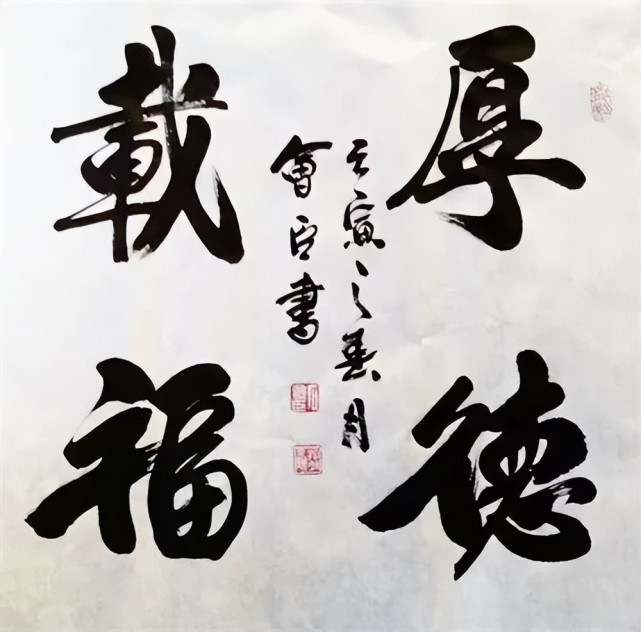 厚德
壬寅之春月
會 書
載福